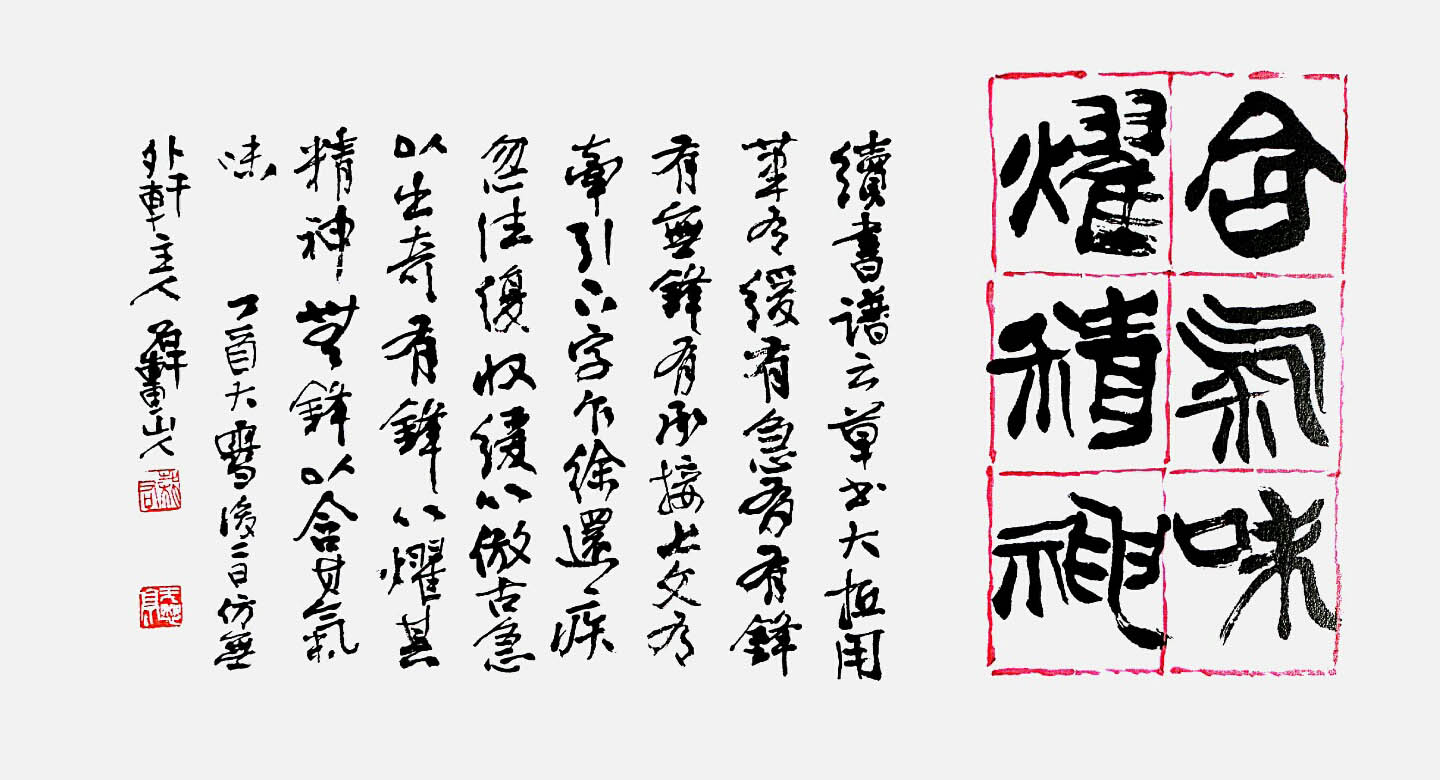 含氣味
燿精神
續書譜云草書大抵用
筆有緩有急有有鋒
有無鋒有承接上文有
牽引下字乍徐還疾
忽往復收緩以倣古急
以出奇有鋒以燿其
精神無鋒以含其氣
味 丁酉大雪後二日仿無
外軒主人